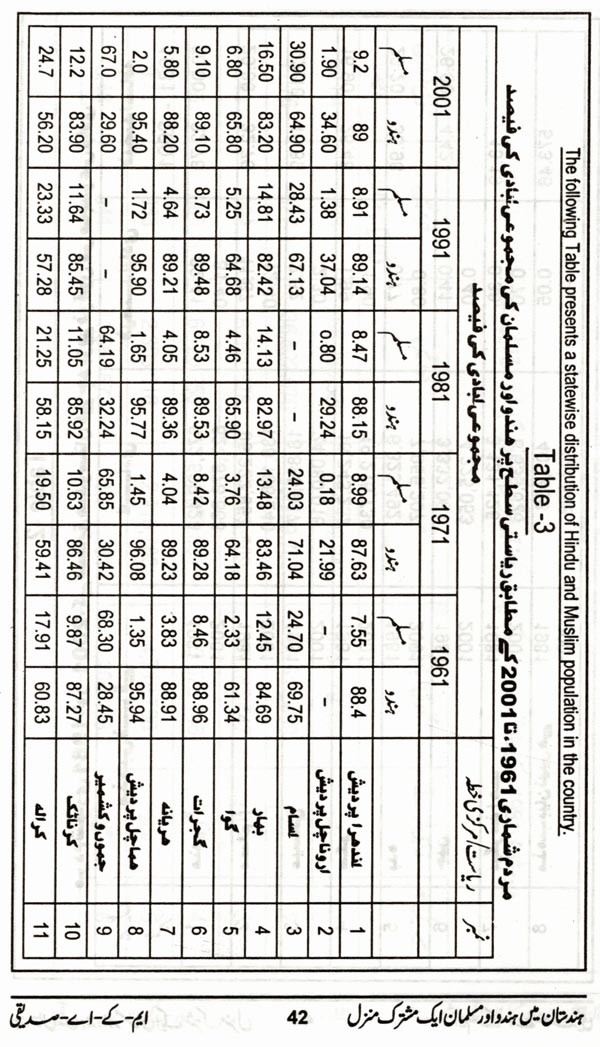 The following Table presents a statewise distribution of Hindu and Muslim population in the country.
Table -3
مردم شماری 1961ء تا 2001 کے مطابق ریاستی سطح پر ہندو اور مسلمان کی مجموعی آبادی کی فیصد
مجموعی آبادی کی فیصد
نمبر ریاست/مرکزی خطہ 1961 1971 1981 1991 2001
ہندو مسلم ہندو مسلم ہندو مسلم ہندو مسلم ہندو مسلم
1 آندھرا پردیش 88.4 7.55 87.63 8.99 88.15 8.47 89.14 8.91 89 9.2
2 اروناچل پردیش – – 21.99 0.18 29.24 o.80 37.04 1.38 34.60 1.90
3 آسام 69.75 24.70 71.04 24.03 – – 67.13 28.43 64.90 30.90
4 بہار 84.69 12.45 83.46 13.48 82.97 14.13 82.42 14.81 83.20 16.50
5 گوا 61.34 2.33 64.18 3.76 65.90 4.46 64.68 5.25 65.80 6.80
6 گجرات 88.96 8.46 89.28 8.42 89.53 8.53 89.48 8.73 89.10 9.10
7 ہریانہ 88.91 3.83 89.23 4.04 89.36 4.05 89.21 4.64 88.20 5.80
8 ہماچل پردیش 95.94 1.35 96.08 1.45 95.77 1.65 95.90 1.72 95.40 2.0
9 جموں و کشمیر 28.45 68.30 30.42 65.85 32.24 64.19 – – 29.60 67.0
10 کرناٹک 87.27 9.87 86.46 10.63 85.92 11.05 85.45 11.64 83.90 12.2
11 کرالہ 60.83 17.91 59.41 19.50 58.15 21.25 57.28 23.33 56.20 24.7
ہندستان میں ہندو اور مسلمان ایک مشترک منزل 42 ایم-کے-اے-صدیقی